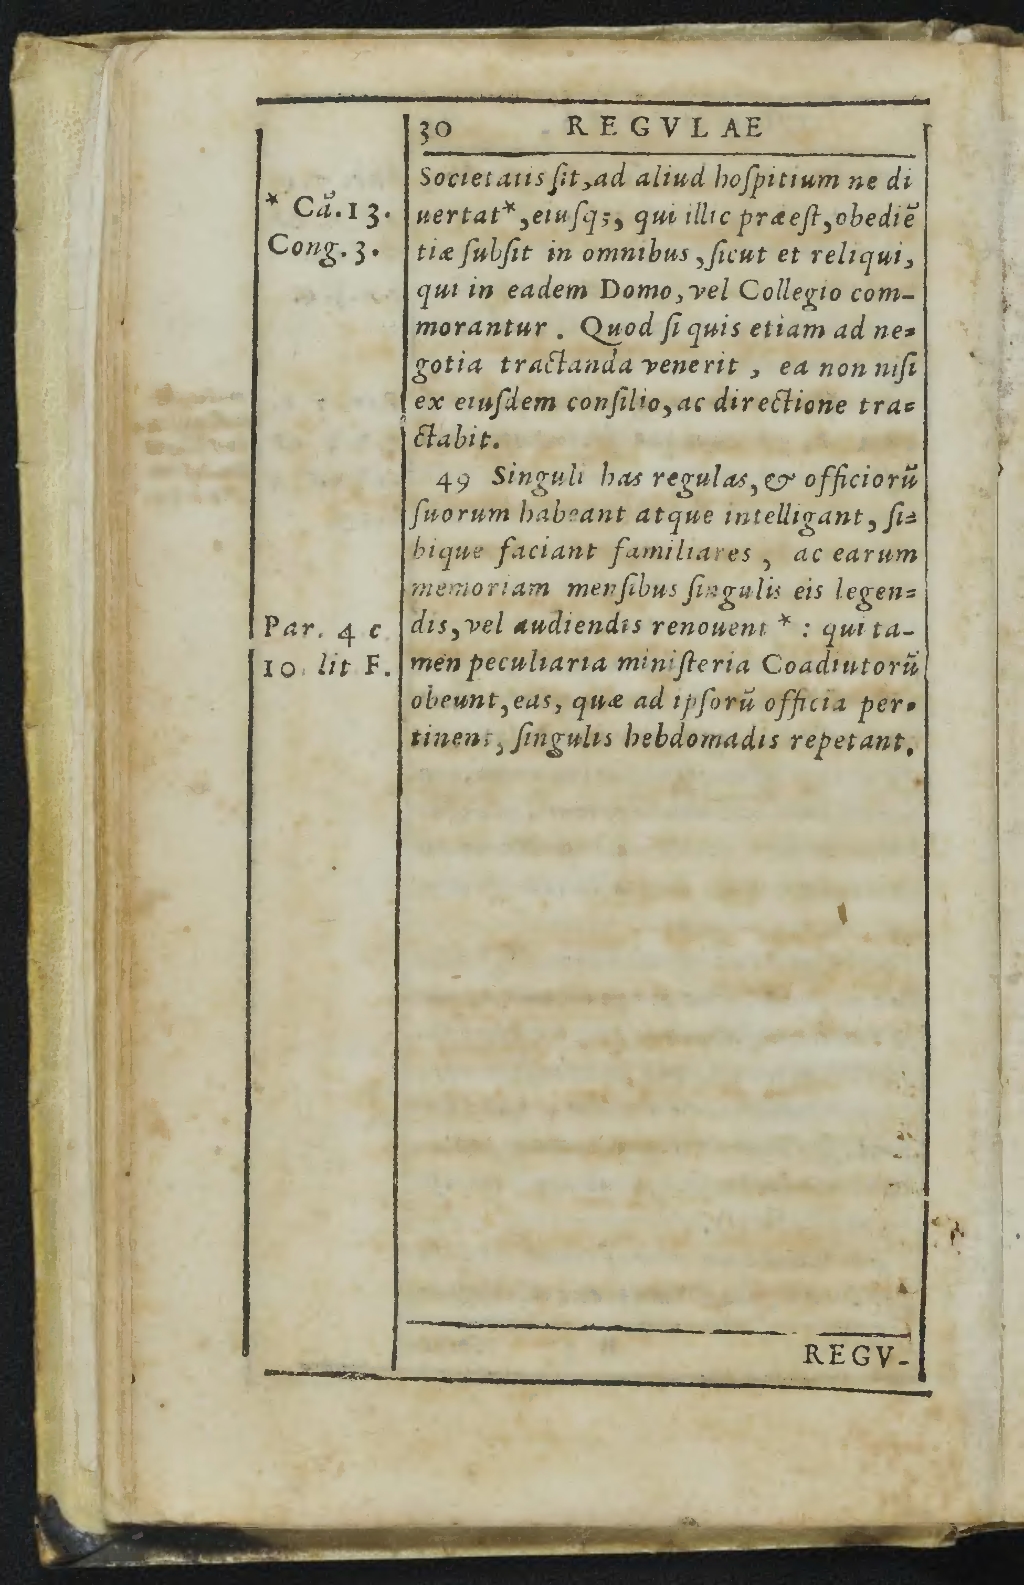 30 REGVLAE
Societatis ſit,ad aliud hoſpitium ne di
* Cā.13.
uertat*,eiuſq;, qui illic præeſt,obediē
Cong.3.
tiæ ſubſit in omnibus ,ſicut et reliqui,
qui in eadem Domo,vel Collegio com-
morantur . Quod ſi quis etiam ad ne-
gotia tractanda venerit , ea non niſi
ex eiuſdem conſilio,ac directione tra-
ctabit.
49 Singuli has regulas,& officiorū
ſuorum habeant atque intelligant, ſi-
bique faciant familiares , ac earum
memoriam menſibus ſingulis eis legen-
Par. 4 c
dis,vel audiendis renouent * : qui ta-
10. lit F.
men peculiaria miniſteria Coadiutorū
obeunt,eas, quæ ad ipſorū officia per-
tinent, ſingulis hebdomadis repetant.
REGV-